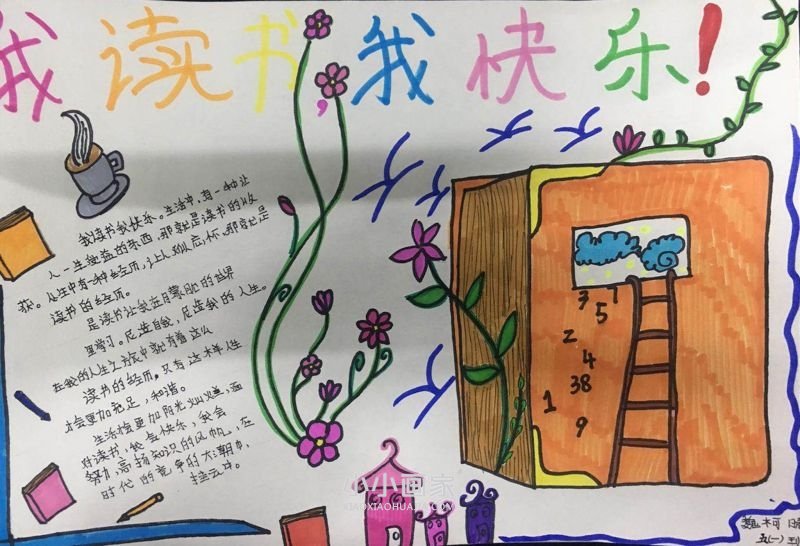 我读书,我快乐!
我读书我快乐。生活中,有一种让
人一生受益的东西,那就是读书的收
获。人生中有一种经历,让人难以忘怀,那就是
读书的经历。
是读书让我在朦胧的世界
里学习。充造自我,充造我的人生。
在我的人生之旅中就有着这么
读书的经历。只有这样人生
才会更加充足,和谐。
生活将更加阳光灿烂,面
对读书,我能快乐,我会
努力高扬知识的风帆,在
时代的竞争的大潮中,
搏击。
3
1
5
2
4
38
1
9
小小画家
XIAOXIAOHUAJIA.COM
魏柯
五(一)班